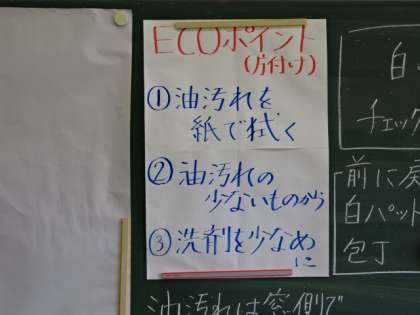 ECOポイント
(片付け)
①油汚れを
紙で拭く
②油汚れの
少ないものから
③洗剤を少なめ
に
白
チェック
前に戻
白パット
包丁
油汚れは窓側で